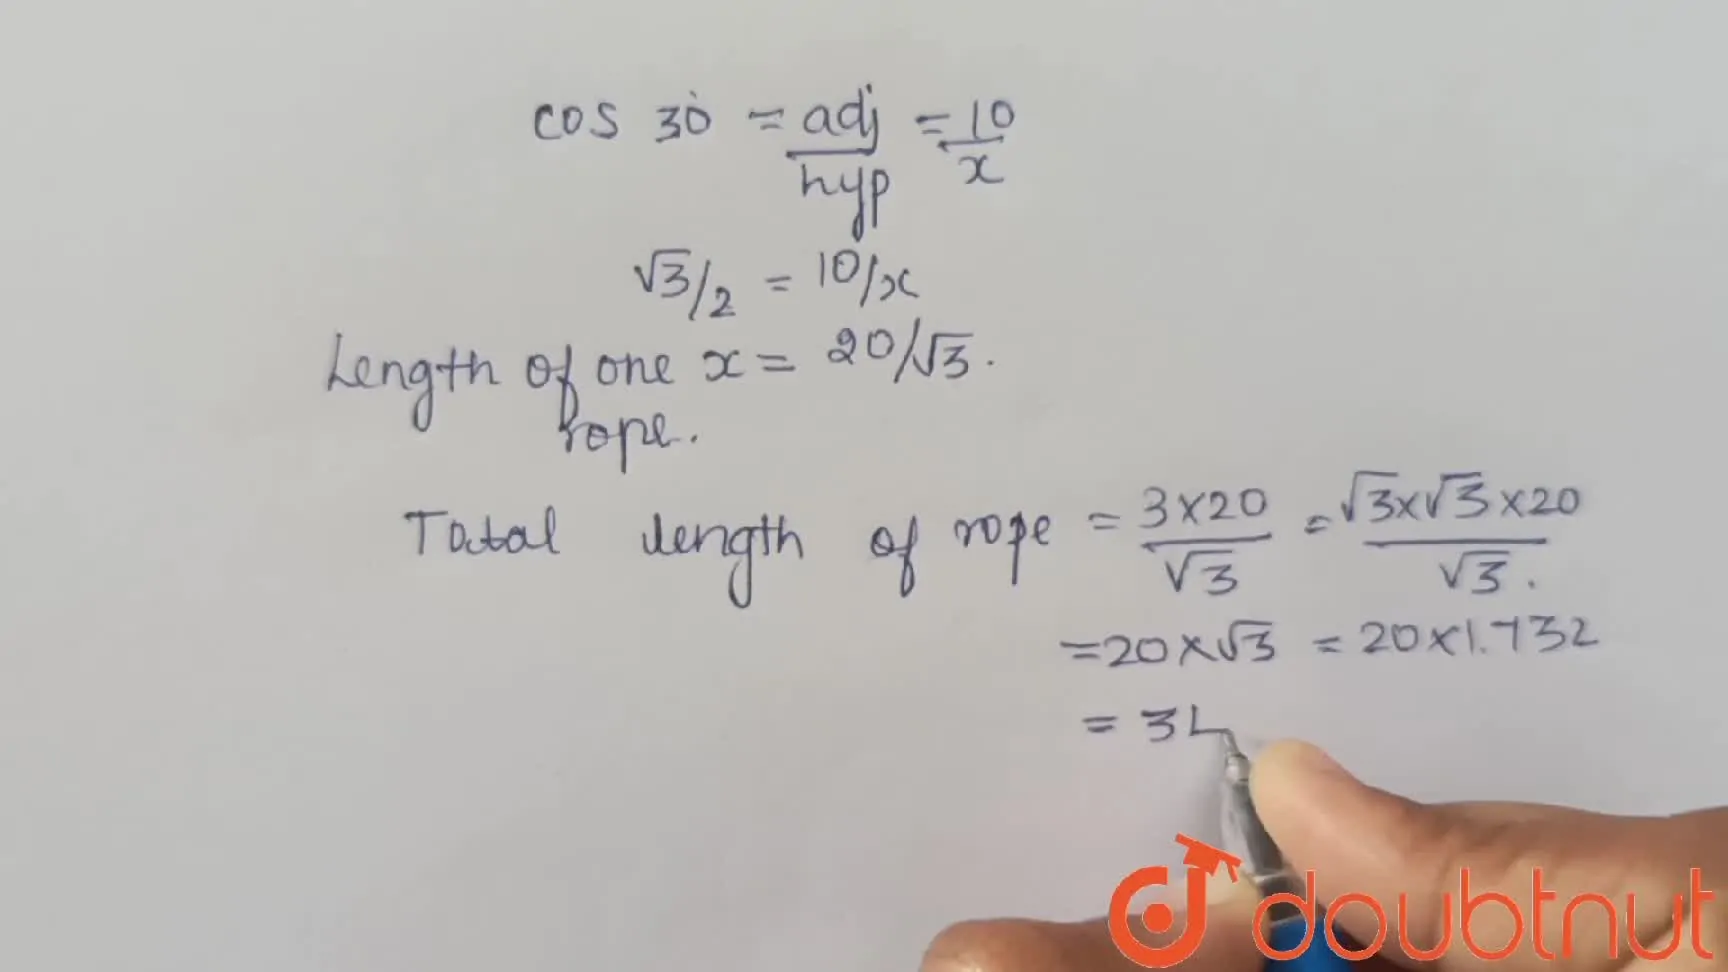 cos 30° = adj/hyp = 10/x
√3/2 = 10/x
Length of one x = 20/√3.
rope.
Total length of rope = 3×20/√3 = √3×√3×20/√3.
= 20×√3 = 20×1.732
= 34
doubtnut